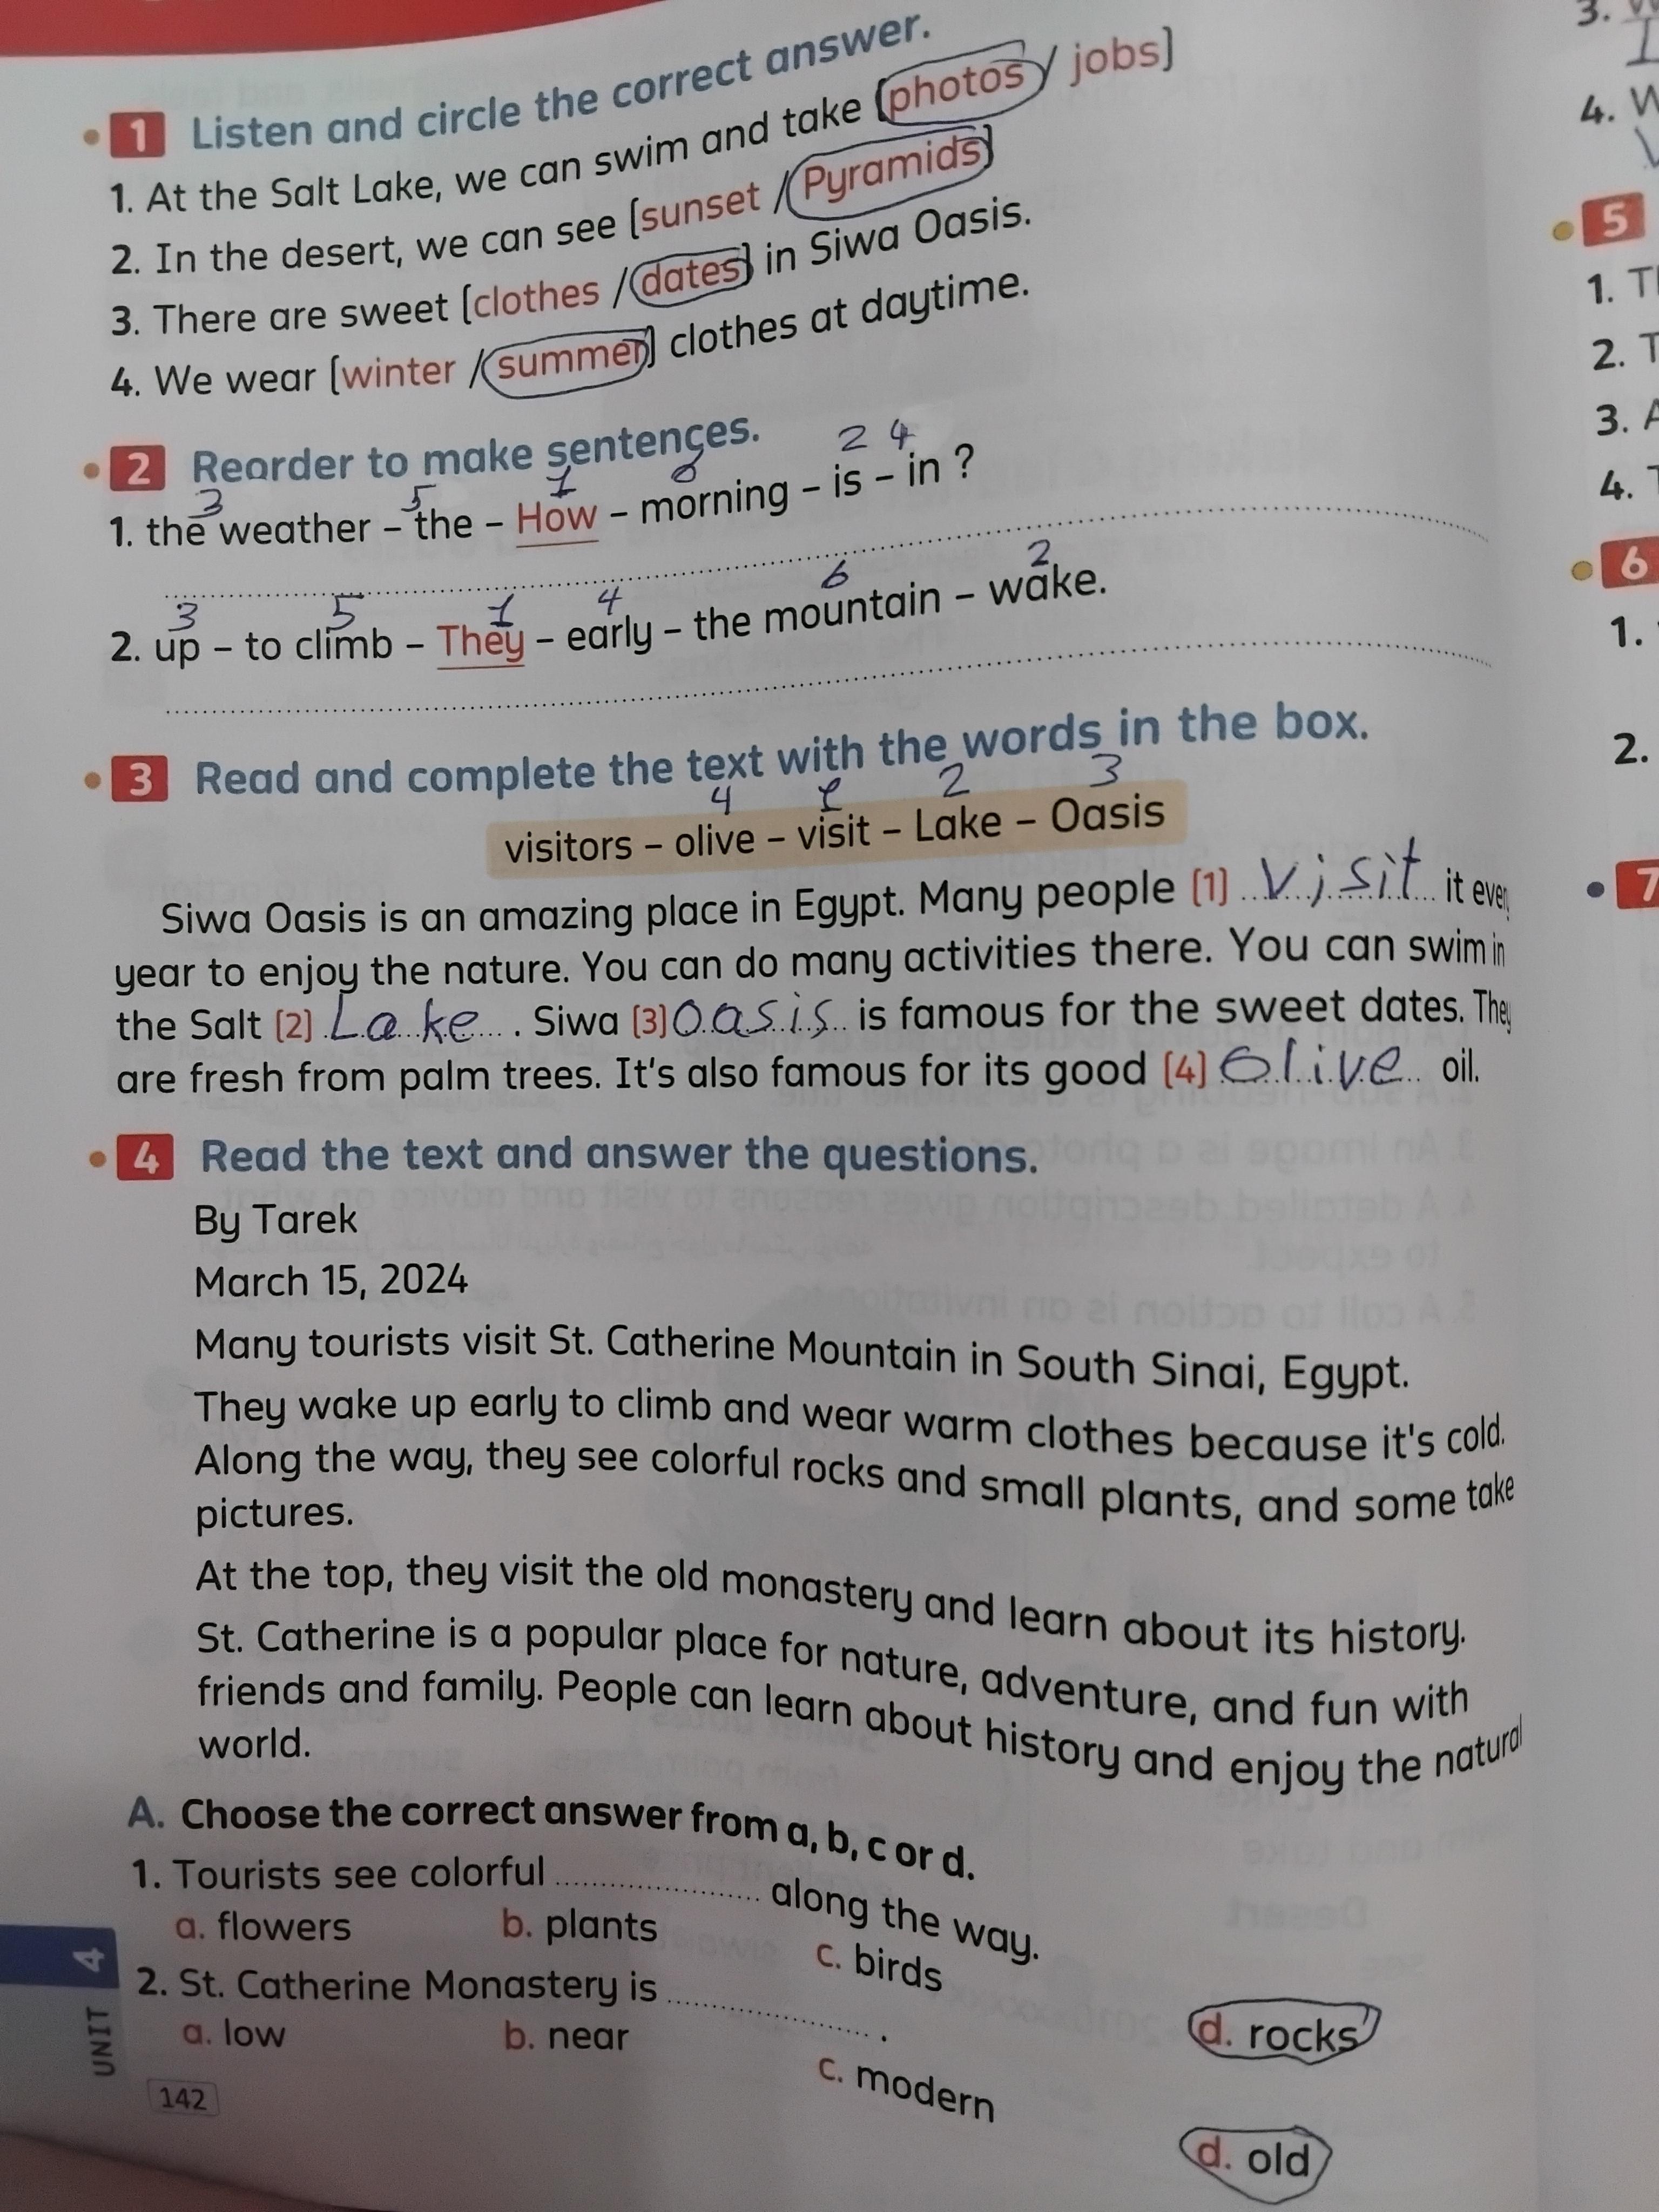 1 Listen and circle the correct answer.
1. At the Salt Lake, we can swim and take (photos / jobs)
2. In the desert, we can see (sunset / Pyramids)
3. There are sweet (clothes / dates) in Siwa Oasis.
4. We wear (winter / summer) clothes at daytime.
2 Reorder to make sentences.
3 5 1 6 2 4
1. the weather – the – How – morning – is – in ?
3 5 1 4 6 2
2. up – to climb – They – early – the mountain – wake.
3 Read and complete the text with the words in the box.
4 1 2 3
visitors – olive – visit – Lake – Oasis
Siwa Oasis is an amazing place in Egypt. Many people (1) visit it every
year to enjoy the nature. You can do many activities there. You can swim in
the Salt (2) Lake . Siwa (3) Oasis is famous for the sweet dates. They
are fresh from palm trees. It's also famous for its good (4) Olive oil.
4 Read the text and answer the questions.
By Tarek
March 15, 2024
Many tourists visit St. Catherine Mountain in South Sinai, Egypt.
They wake up early to climb and wear warm clothes because it's cold.
Along the way, they see colorful rocks and small plants, and some take
pictures.
At the top, they visit the old monastery and learn about its history.
St. Catherine is a popular place for nature, adventure, and fun with
friends and family. People can learn about history and enjoy the natural
world.
A. Choose the correct answer from a, b, c or d.
1. Tourists see colorful .................... along the way.
a. flowers b. plants c. birds d. rocks
2. St. Catherine Monastery is .................... .
a. low b. near c. modern d. old
UNIT 4
142
3.
4. W
5
1. Th
2. T
3. A
4. T
6
1.
2.
7